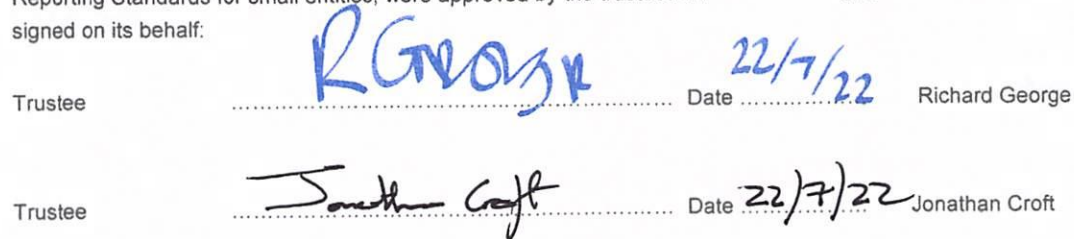 signed on its behalf:
Trustee R George Date 22/7/22 Richard George
Trustee Jonathan Croft Date 22/7/22 Jonathan Croft